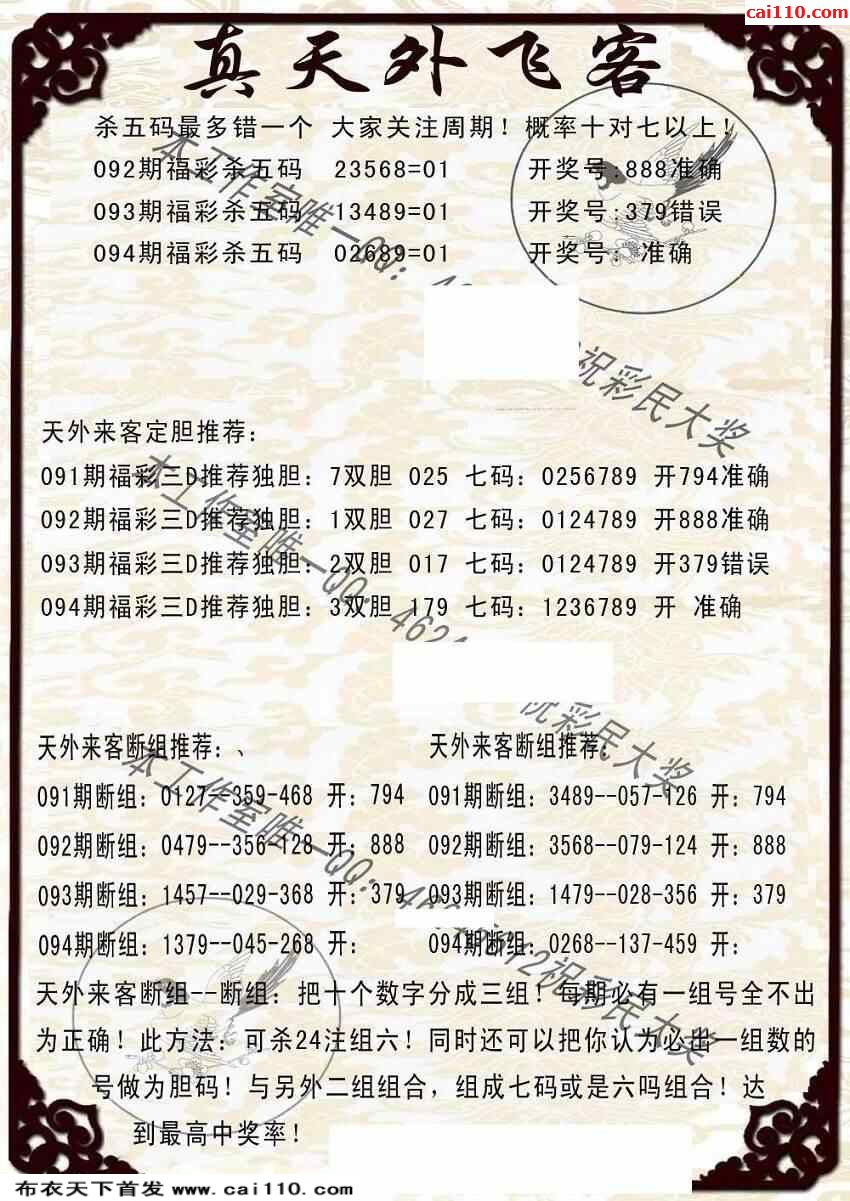 cai110.com
真天外飞客
杀五码最多错一个 大家关注周期！概率十对七以上！
092期福彩杀五码 23568=01 开奖号:888准确
093期福彩杀五码 13489=01 开奖号:379错误
094期福彩杀五码 02689=01 开奖号: 准确
本工作室唯一QQ：4
祝彩民大奖
天外来客定胆推荐：
091期福彩三D推荐独胆：7双胆 025 七码：0256789 开794准确
092期福彩三D推荐独胆：1双胆 027 七码：0124789 开888准确
093期福彩三D推荐独胆：2双胆 017 七码：0124789 开379错误
094期福彩三D推荐独胆：3双胆 179 七码：1236789 开 准确
本工作室唯一QQ：462
彩民大奖
天外来客断组推荐：、 天外来客断组推荐：
091期断组：0127--359-468 开：794 091期断组：3489--057-126 开：794
092期断组：0479--356-128 开：888 092期断组：3568--079-124 开：888
093期断组：1457--029-368 开：379 093期断组：1479--028-356 开：379
094期断组：1379--045-268 开： 094期断组：0268--137-459 开：
本工作室唯一QQ：
祝彩民大奖
天外来客断组--断组：把十个数字分成三组！每期必有一组号全不出
为正确！此方法：可杀24注组六！同时还可以把你认为必出一组数的
号做为胆码！与另外二组组合，组成七码或是六吗组合！达
到最高中奖率！
布衣天下首发 www.cai110.com